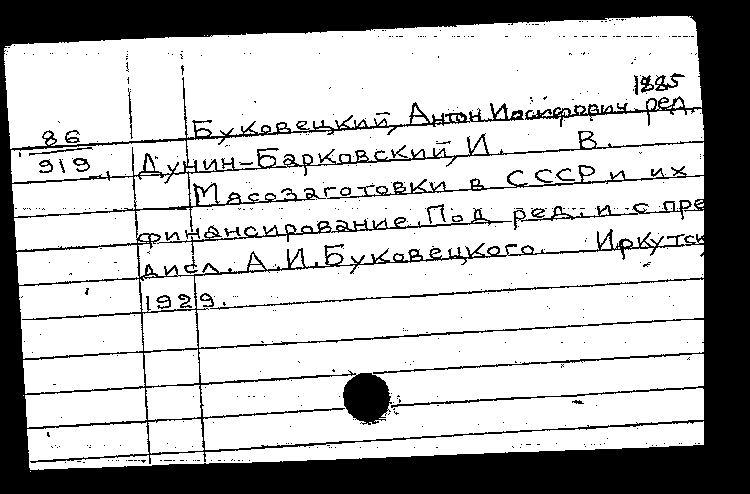 1885
Буковецкий, Антон Иосифович. ред.
86
919 Дунин-Барковский, И. В.
Мясозаготовки в СССР и их
финансирование. Под ред. и с пре
дисл. А.И.Буковецкого. Иркутск,
1929.